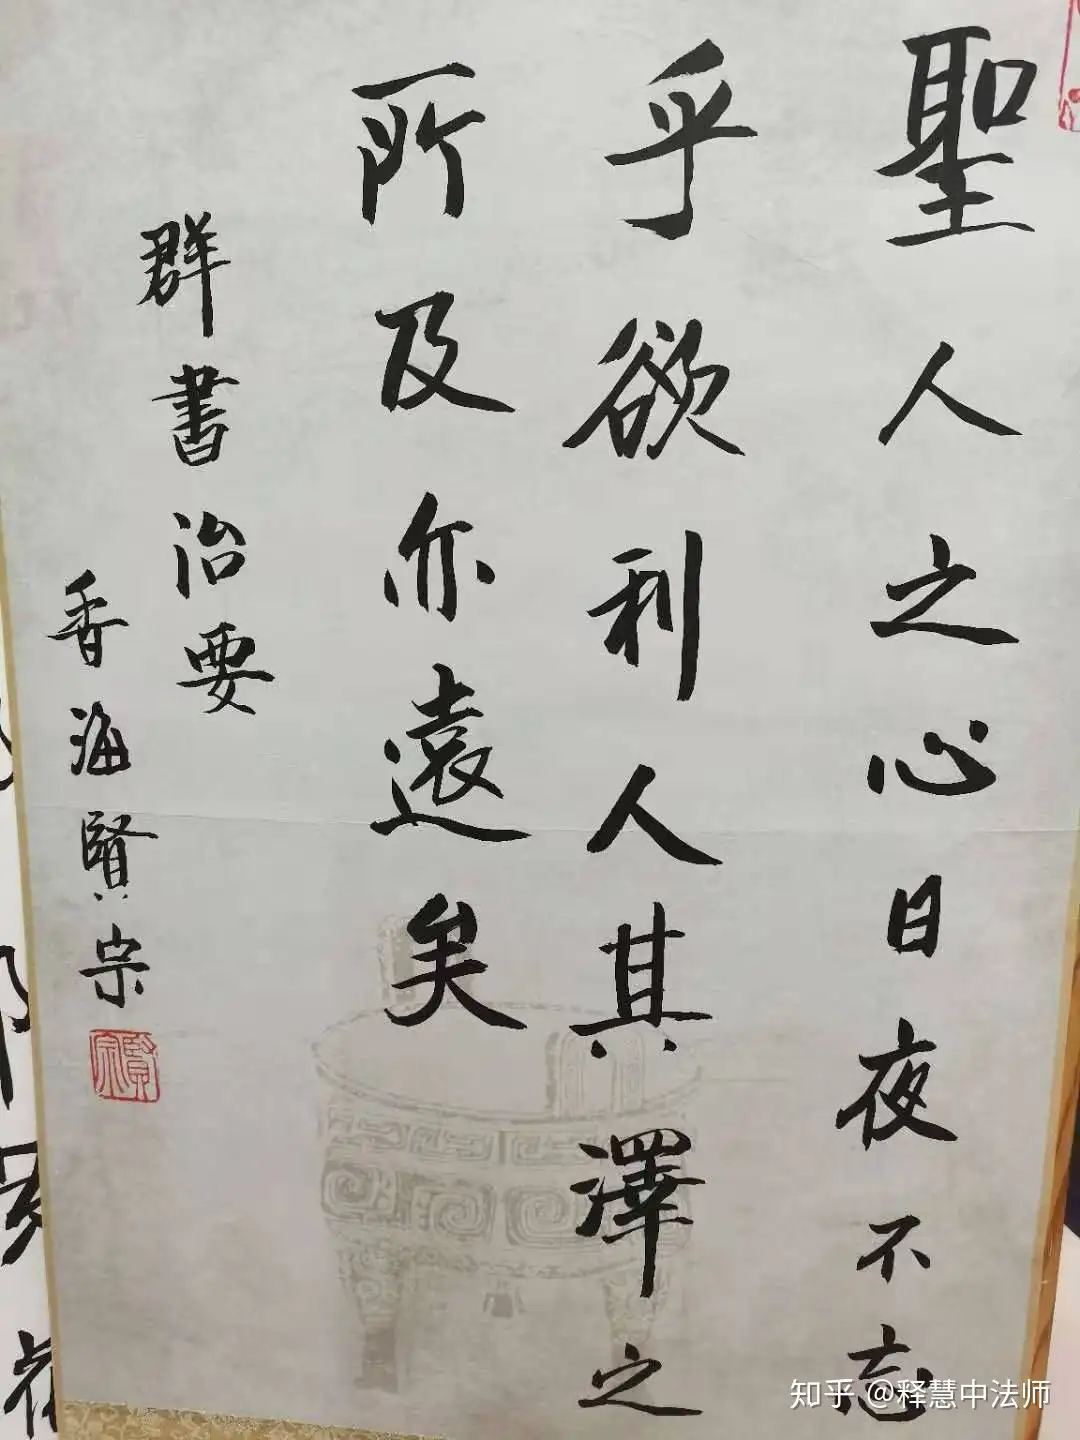 聖人之心日夜不忘
乎欲利人其澤之
所及亦遠矣
群書治要
香海賢宗
賢宗
知乎 @释慧中法师